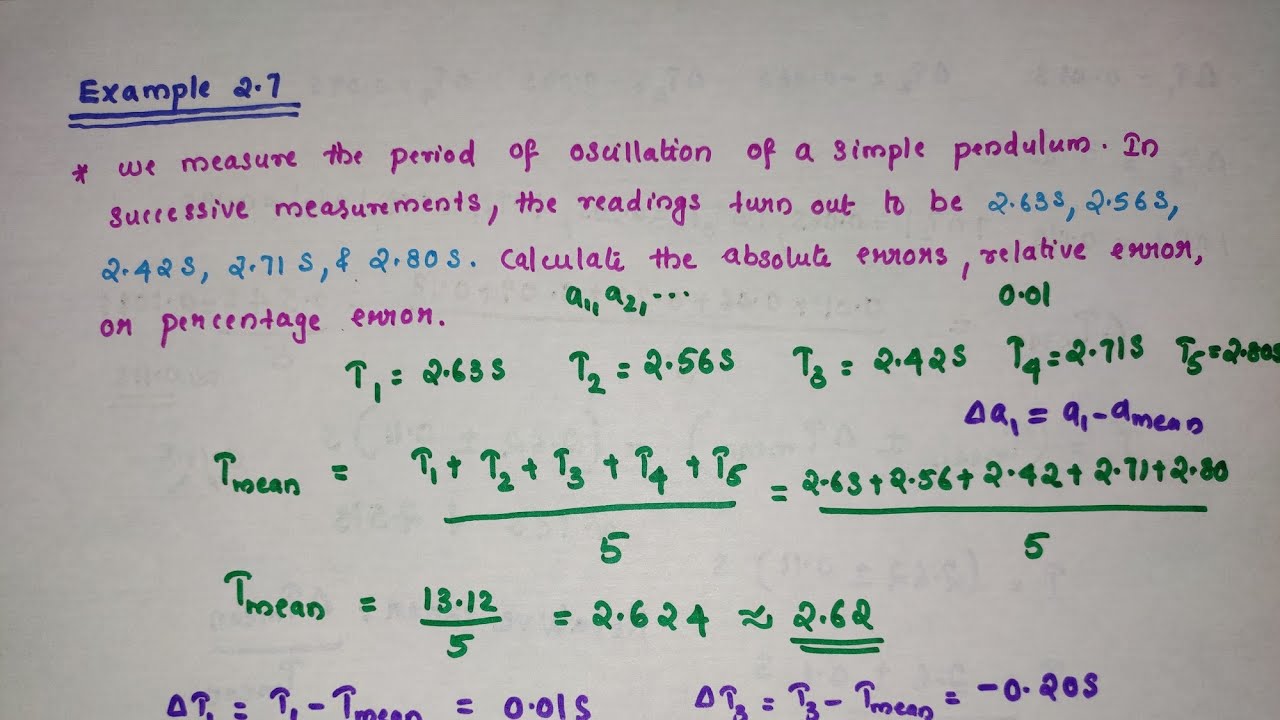 Example 2.7
* we measure the period of oscillation of a simple pendulum. In
successive measurements, the readings turn out to be 2.63s, 2.56s,
2.42s, 2.71s, & 2.80s. Calculate the absolute errors, relative error,
or percentage error.
a₁, a₂, ...
0.01
T₁ = 2.63s T₂ = 2.56s T₃ = 2.42s T₄ = 2.71s T₅ = 2.80s
Δa₁ = a₁ - a_mean
T_mean = (T₁ + T₂ + T₃ + T₄ + T₅)/5 = (2.63 + 2.56 + 2.42 + 2.71 + 2.80)/5
T_mean = 13.12/5 = 2.624 ≈ 2.62
ΔT₁ = T₁ - T_mean = 0.01s ΔT₃ = T₃ - T_mean = -0.20s